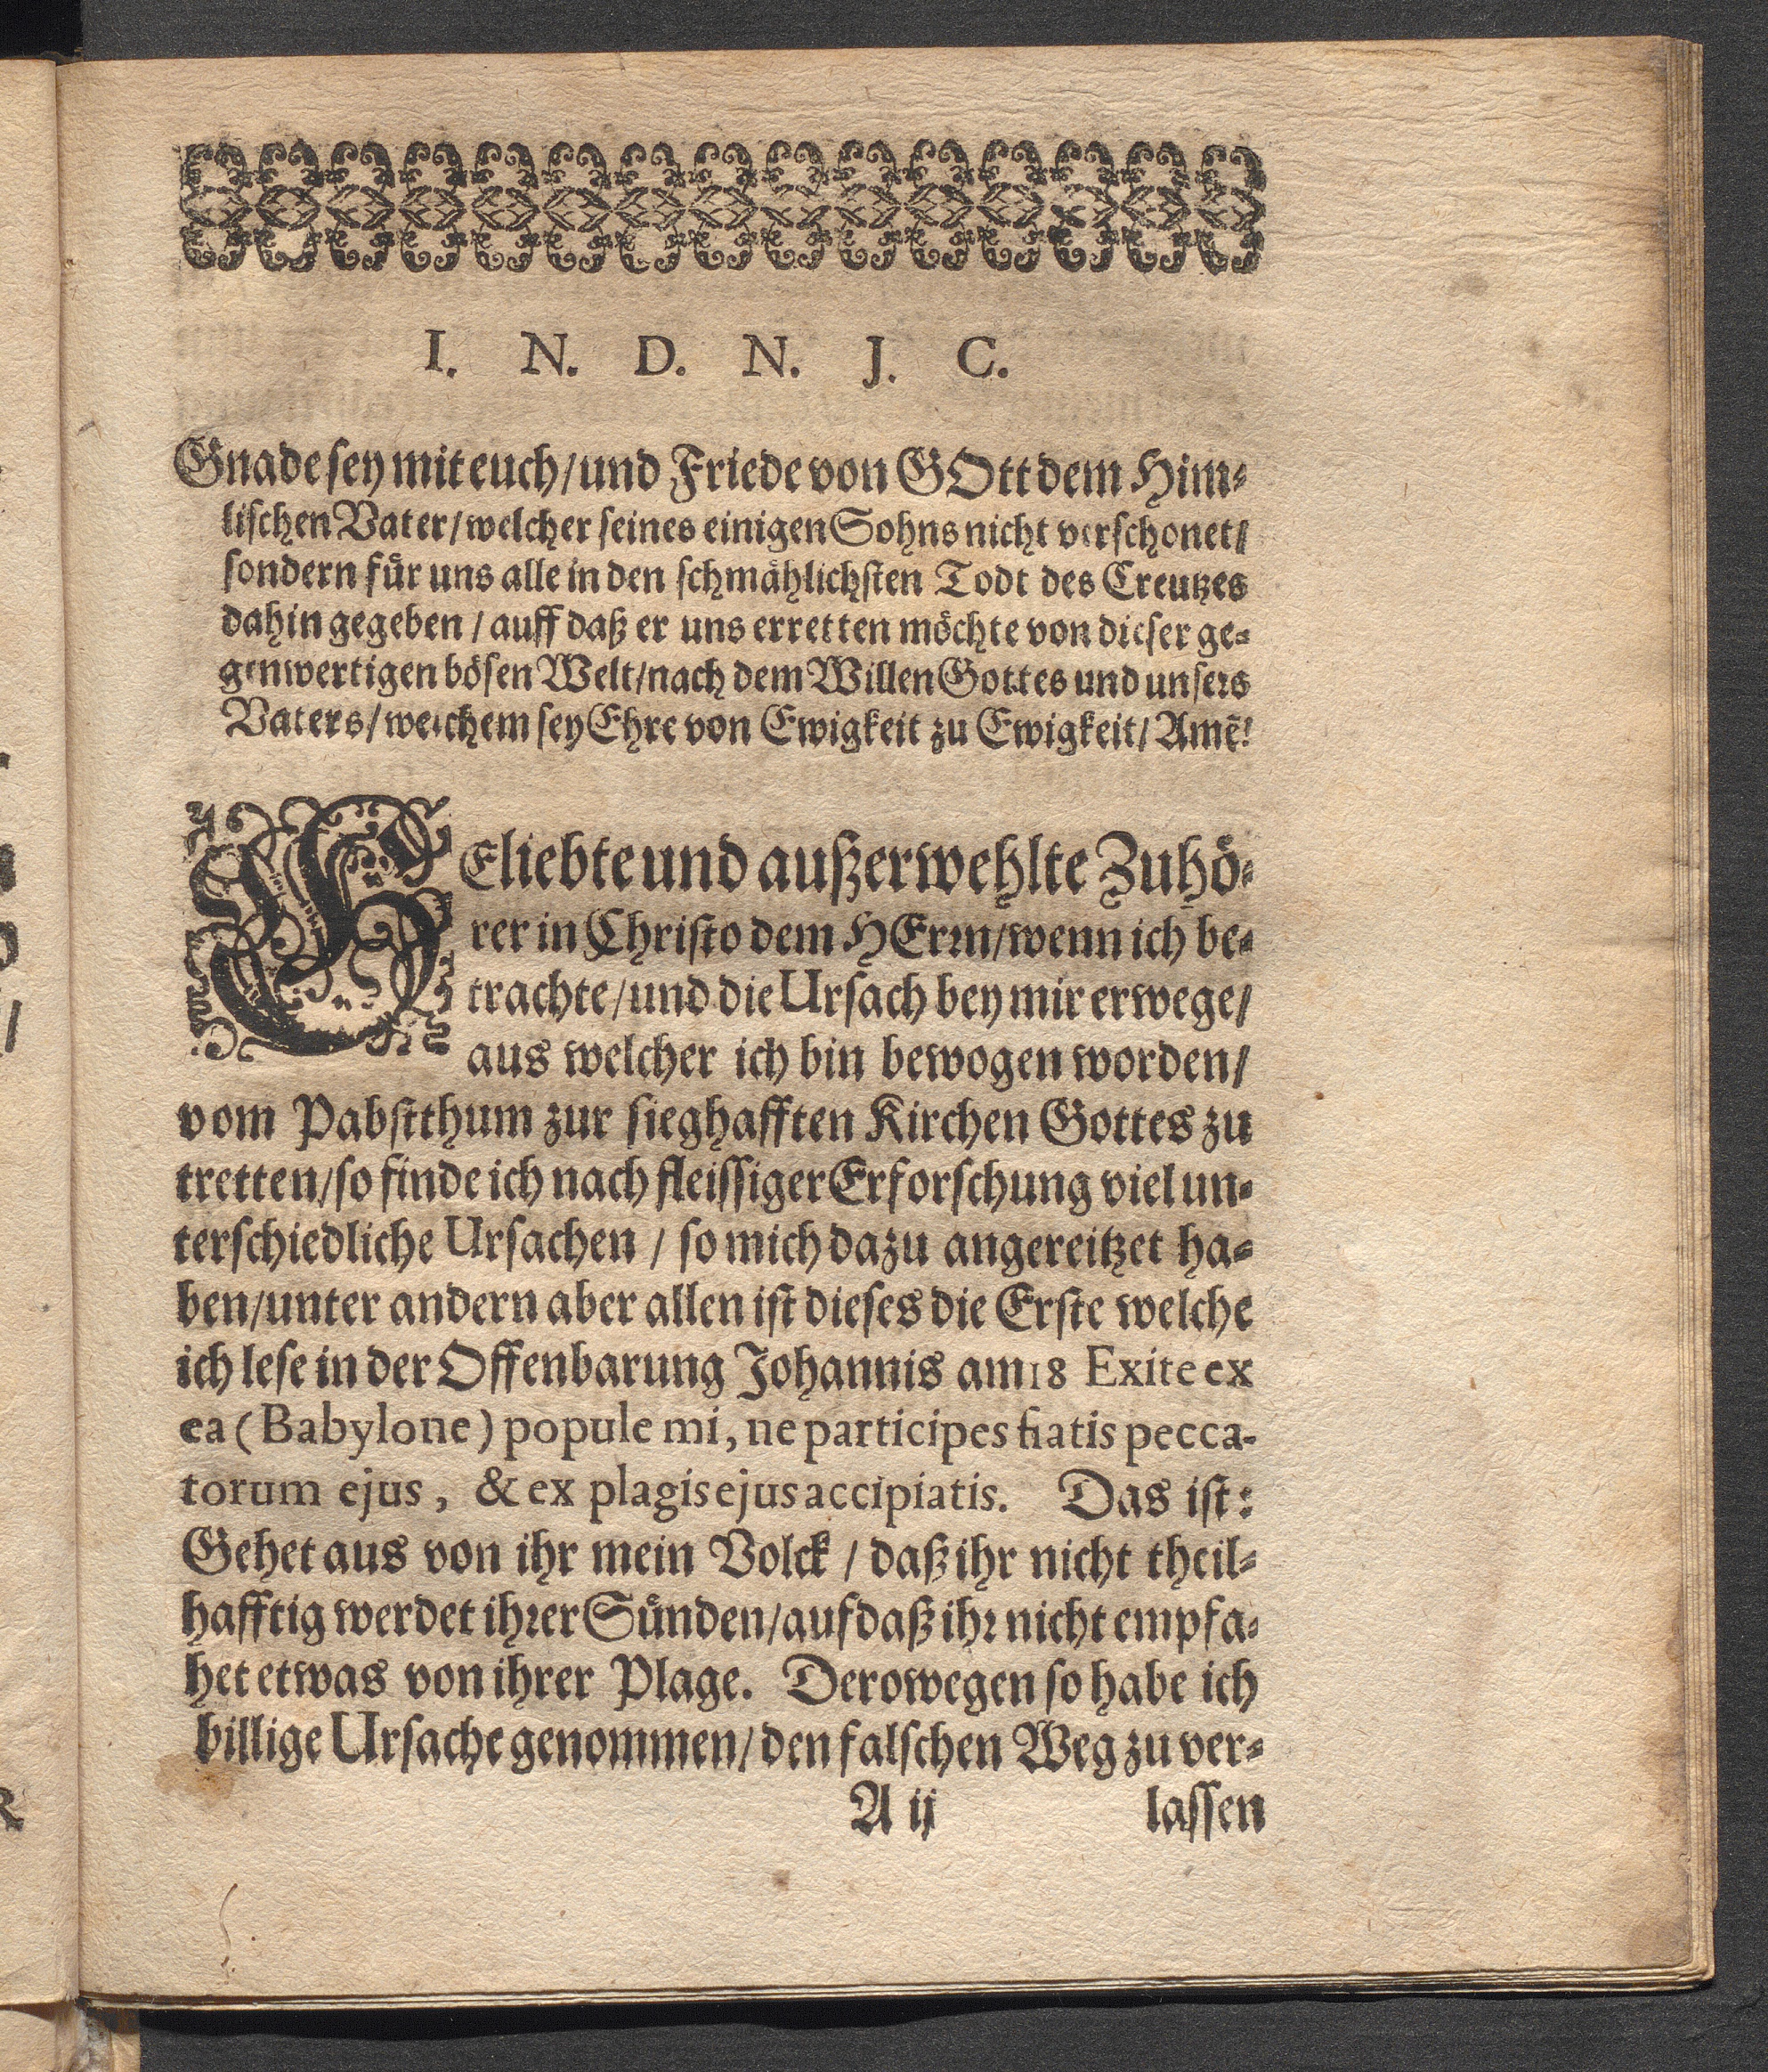 I. N. D. N. J. C.
Gnade sey mit euch / und Friede von GOtt dem Him⸗
lischen Vater / welcher seines einigen Sohns nicht verschonet /
sondern fuͤr uns alle in den schmaͤhlichsten Todt des Creutzes
dahin gegeben / auff daß er uns erretten moͤchte von dieser ge⸗
genwertigen boͤsen Welt / nach dem Willen Gottes und unsers
Vaters / welchem sey Ehre von Ewigkeit zu Ewigkeit / Amẽ!
GEliebte und außerwehlte Zuhoͤ⸗
rer in Christo dem HErrn / wenn ich be⸗
trachte / und die Ursach bey mir erwege /
aus welcher ich bin bewogen worden /
vom Pabstthum zur sieghafften Kirchen Gottes zu
tretten / so finde ich nach fleissiger Erforschung viel un⸗
terschiedliche Ursachen / so mich dazu angereitzet ha⸗
ben / unter andern aber allen ist dieses die Erste welche
ich lese in der Offenbarung Johannis am 18 Exite ex
ea ( Babylone ) popule mi, ne participes fiatis pecca-
torum ejus, & ex plagis ejus accipiatis. Das ist:
Gehet aus von ihr mein Volck / daß ihr nicht theil⸗
hafftig werdet ihrer Suͤnden / auf daß ihr nicht empfa⸗
het etwas von ihrer Plage. Derowegen so habe ich
billige Ursache genommen / den falschen Weg zu ver⸗
A ij lassen